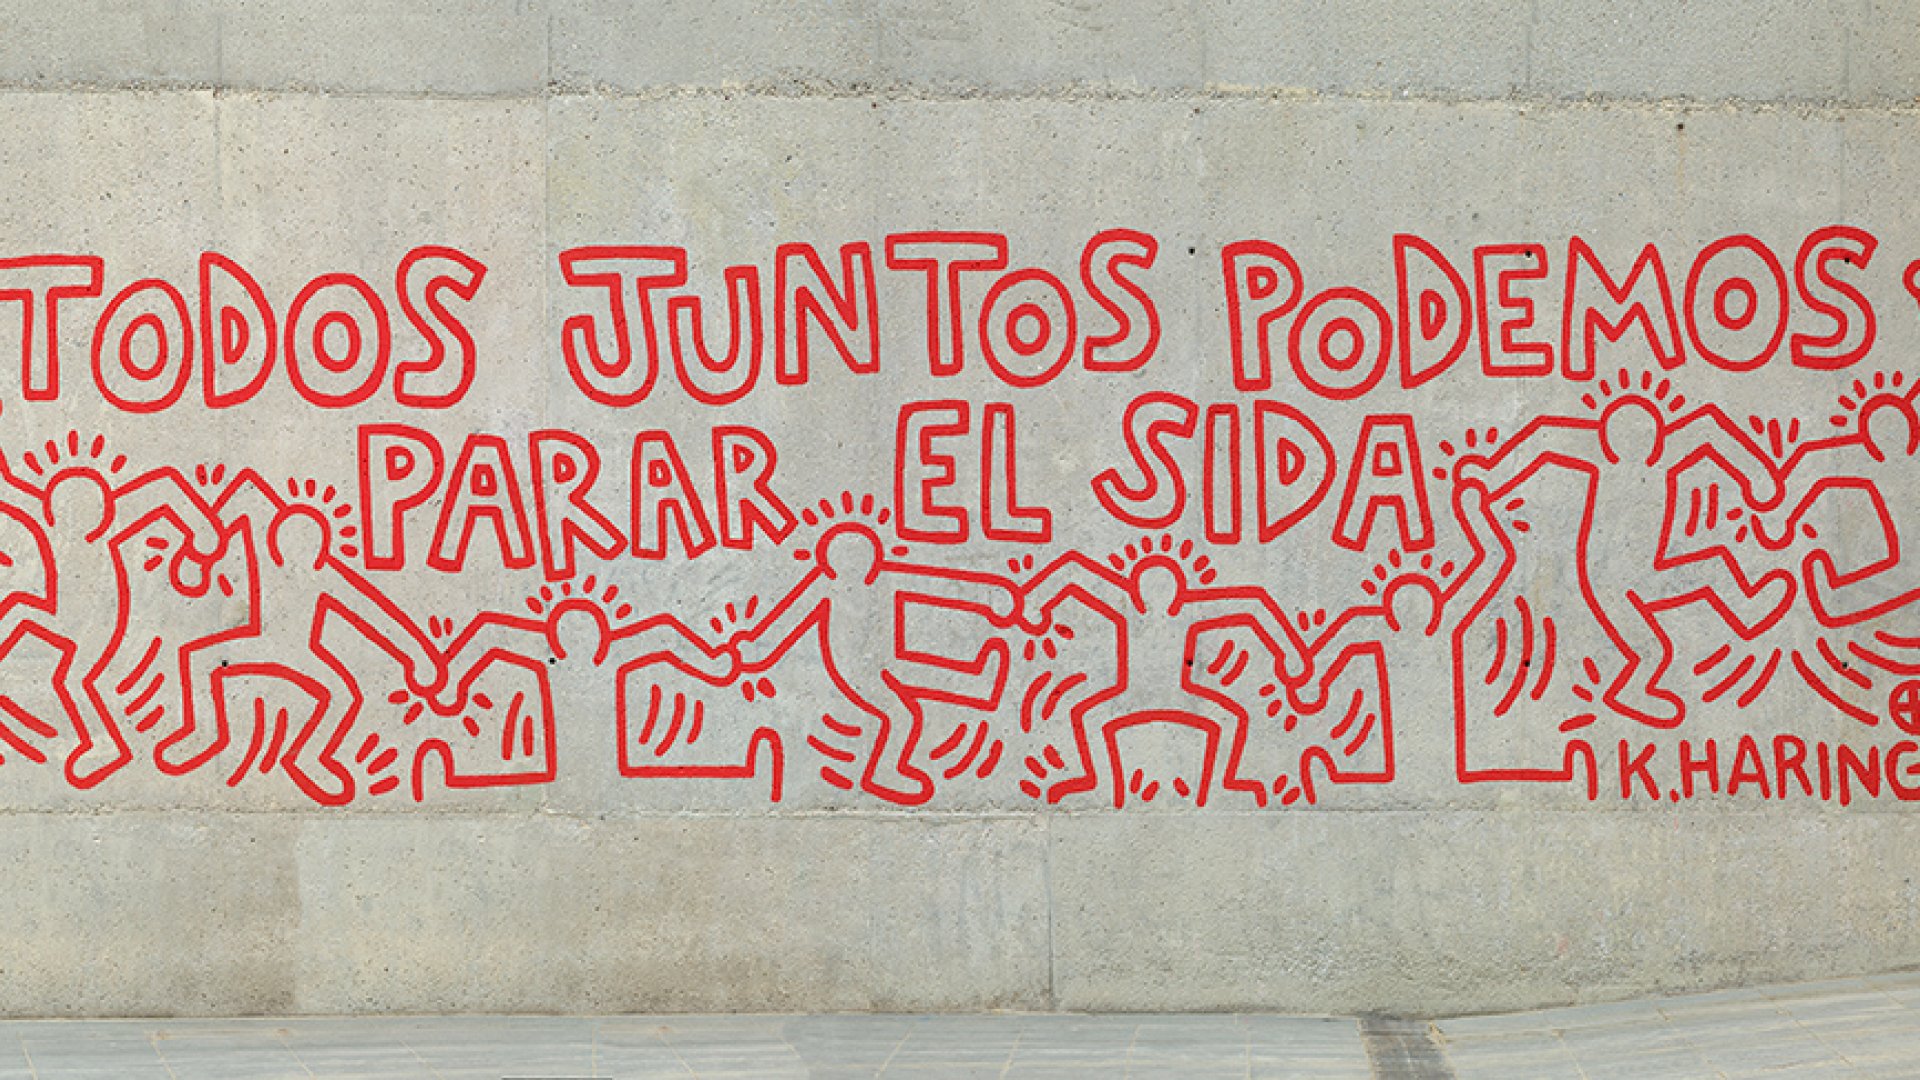 TODOS JUNTOS PODEMOS
PARAR EL SIDA
K. HARING